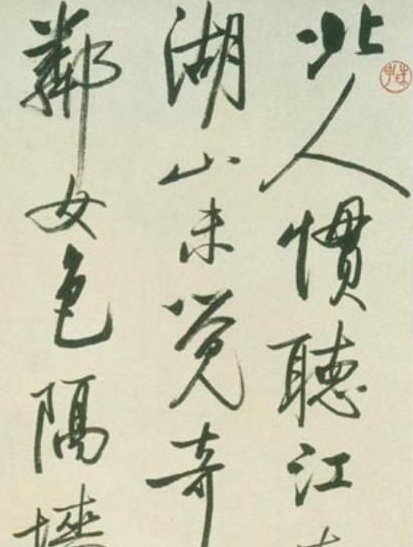 北人慣聽江
湖山未覺奇
鄰女色隔墻